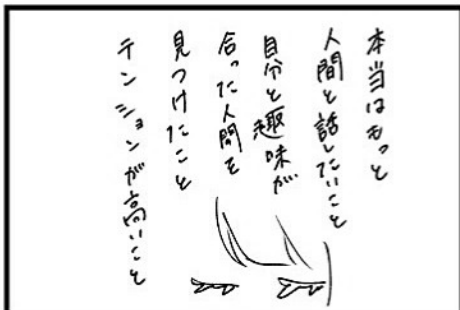 本当はもっと
人間と話したいこと
自分と趣味が
合った人間を
見つけたこと
テンションが高いこと